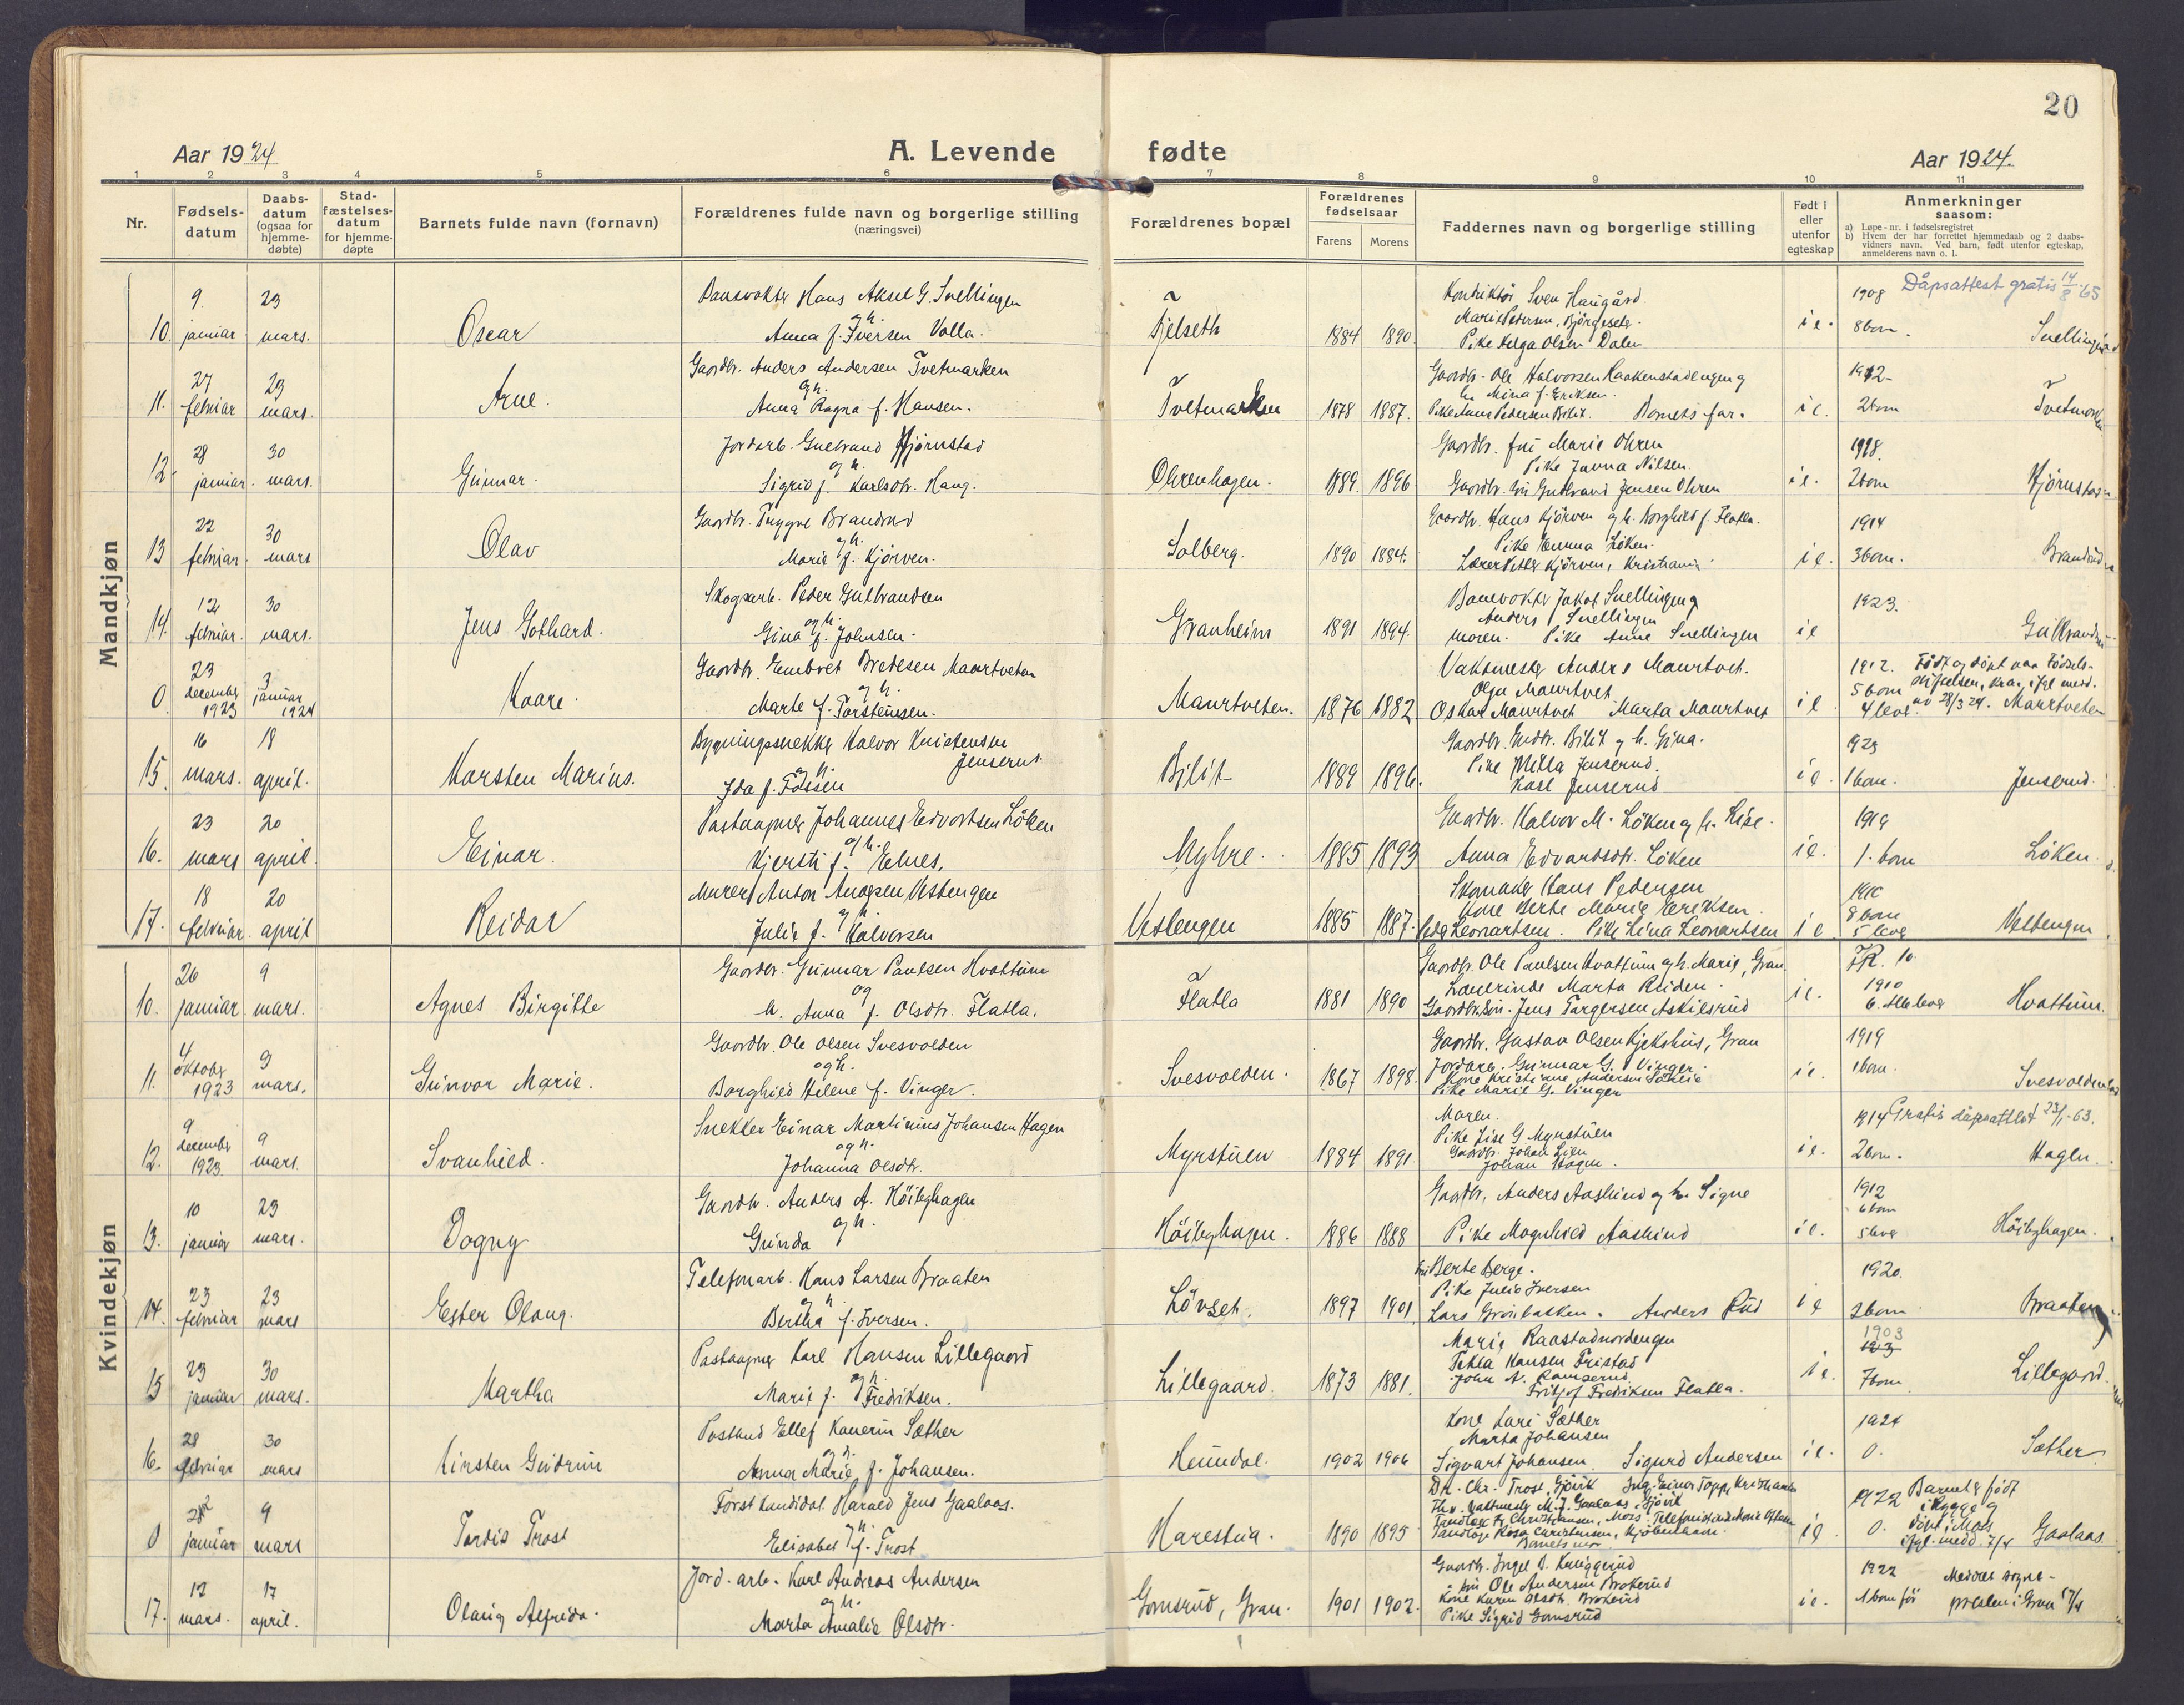 20
Aar 1924
A. Levende fødte
Aar 1924.
1 2 3 4 5 6 7 8 9 10 11
Nr.
Fødselsdatum
Daabsdatum (ogsaa for hjemmedøbte)
Stadfæstelsesdatum for hjemmedøpte
Barnets fulde navn (fornavn)
Forældrenes fulde navn og borgerlige stilling (næringsvei)
Forældrenes bopæl
Forældrenes fødselsaar
Farens Morens
Faddernes navn og borgerlige stilling
Født i eller utenfor egteskap
Anmerkninger saasom:
a) Løpe-nr. i fødselsregistret
b) Hvem der har forrettet hjemmedaab og 2 daabsvidners navn. Ved barn, født utenfor egteskap, anmelderens navn o. l.
Mandkjøn
10. 9. januar 23 mars. Oscar
Hans Aksel G. Snellingen
og h.
Anna f. Iversen Volla.
Fjelseth 1884 1890
Sven Haugård.
Marie Pedersen,
Pike Helga Olsen Dalen
i e. 1908 8 barn. Dåpsattest gratis 14/8-65
11. 27 februar 23 mars. Arne.
Gaardbr. Anders Andersen Tvetmarken
og h.
Anna Ragna f. Hansen.
Tvetmarken 1878 1887.
Gaardbr. Ole Halvorsen Haakenstadengen og
h. Mina f. Eriksen.
Barnets far.
i e. 1912- 2 barn
12. 28 januar. 30 mars. Gunnar.
Jordarb. Gudbrand Hjørnstad
og h.
Sigrid f. Karlsdtr. Haug.
Ohrenhagen. 1889. 1896
Gaardbr. fru Marie Ohren
Pike Janna Nilsen.
Gaardbr. søn Gudbrand Jensen Ohren
i e. 1918. 2 barn
13 22 februar. 30 mars Olav
Gaardbr. Trygve Brandrud
og h.
Marie f. Kjørven.
Solberg. 1890 1884.
Gaardbr. Hans Kjørven og h. Borghild f. Flatla.
Pike Emma Løken.
Lærer Peter Kjørven, Kristiania
i e. 1914 3 barn.
14. 12 februar. 30 mars. Jens Gothard.
Skogsarb. Peder Gulbrandsen
og h.
Gina f. Johnsen.
Granheim 1891 1894.
Banevokter Jakob Snellingen
Anders Snellingen
moren. Pike Anne Snellingen
i e 1923.
0. 23 december 1923 3. januar 1924 Kaare.
Gaardbr. Embret Bredesen Maurtveten
og h.
Marte f. Torstensen.
Maurtveten. 1876 1882
Vaktmester Anders Maurtvet.
Olga Maurtvet
Oskar Maurtvet Marta Maurtvet
i e 1912. 5 barn 4 lever. Født og døpt av 28/3 24. Maurtveten
15. 16 mars. 18 april. Karsten Marius.
Bygningssnekker Halvor Kristensen Jenserud
og h.
Ida f. Fossen
Bilit 1889 1896.
Gaardbr. Bilit og h. Gina.
Pike Milla Jenserud.
Karl Jenserud
i e. 1923 1 barn. Jenserud.
16. 23 mars 20 april. Einar.
Postaapner Johannes Edvartsen Løken
og h.
Kjersti f. Elnes.
Myhre. 1885 1893
Gaardbr. Halvor M. Løken og h. Lise.
Anna Edvardsdtr. Løken
i e. 1919 1. barn Løken.
17. 18 februar. 20 april Reidar
Murer Anton Vestengen
og h.
Julie f. Halvorsen
Vestengen 1885 1887.
Skomaker Hans Pedersen
Kone Berte Marie Eriksen.
Peder Leonartsen. Pike Lina Leonartsen
i e 1910 8 barn 5 lever Vestengen
Kvindekjøn
10. 26 januar 9 mars. Agnes Birgitte
Gaardbr. Gunnar Paulsen Hvattum
og
h. Anna f. Olsdtr. Flatla.
Flatla 1881 1890
Gaardbr. Ole Paulsen Hvattum og h. Marie, Gran.
Lærerinde Marta Reiden.
Gaardbr. søn. Jens Torgersen Askilsrud
i e. 10 1910 6. alle lever Hvattum.
11. 4 oktober 1923 9 mars. Gunvor Marie.
Gaardbr. Ole Olsen Svesvolden
og h.
Borghild Helene f. Vinger.
Svesvolden. 1867 1898.
Gaardbr. Gustav Olsen Kjekshus, Gran
Jordarb. Gunnar G. Vinger.
Kone Kristiane Andersen Sæthlie
Pike Marie G. Vinger
i e. 1919 1 barn.
12. 9 december 1923. 9 mars. Svanhild.
Snekker Einar Martinius Johansen Hagen
og h.
Johanna Olsdtr.
Myrstuen 1884 1891
Moren.
Pike Lise G Myrstuen
Gaardbr. Johan Lien
Johan Hagen.
i e. 1914 2 barn. Gratis dåpsattest 23/1-63. Hagen.
13. 10 januar 23 mars. Dagny
Gaardbr. Anders A. Høibyhagen
og h.
Gunda
Høibyhagen. 1886 1888
Gaardbr. Anders Aaslund og h. Signe
Pike Magnhild Aaslund
i e. 1912 6 barn 5 lever Høibyhagen.
14. 23 februar 23 mars Ester Olaug.
Telefonarb. Hans Larsen Braaten
og h
Bertha f. Iversen.
Løvset. 1897 1901
fru Berte Berge.
Pike Julie Iversen
Lars Grønbakken. Anders Rud
i e 1920. 2 barn Braaten
15 23 januar 30 mars. Martha
Postaapner Karl Hansen Lillegaard
og h.
Marie f. Fredriksen.
Lillegaard. 1873 1881.
Marie Raastadnordengen
Tekla Hansen Fristad
John A. Ramserud.
Fritjof Fredriksen Flatla.
i e. 1903 7 barn Lillegaard.
16. 28 februar 30 mars Kirsten Gudrun
Postbud Ellef Kanerin Sæther
og h.
Anna Marie f. Johansen.
Heimdal. 1902 1906
Kone Kari Sæther
Marta Johansen
Sigvart Johansen. Sigurd Andersen
i e. 1924 0. Sæther
0 januar 9 mars Tordis Trost
Forstkandidat Harald Jens Gaalaas.
og h.
Elisabet f. Trost
Harestua. 1890 1895
Dr. Chr. Trost, Gjøvik Ing. Einar Topp, Kristiania
Gjøvik
Moss.
Kjøbenhavn.
Barnets mor
i e 1922 0. Barnet er født i Rygge og døpt i Moss ifgl. medd. 7/4 Gaalaas.
17. 12 mars. 17 april. Olaug Alfrida.
Jord. arb. Karl Andreas Andersen
og h.
Marta Amalie Olsdtr.
Gomsrud, Gran. 1901 1902.
Ole Andersen Brokerud
Kone Karen Olsdtr. Brokerud
Pike Sigrid Gomsrud
i e. 1922 1 barn før Meddelt sogne-presten i Gran 17/4